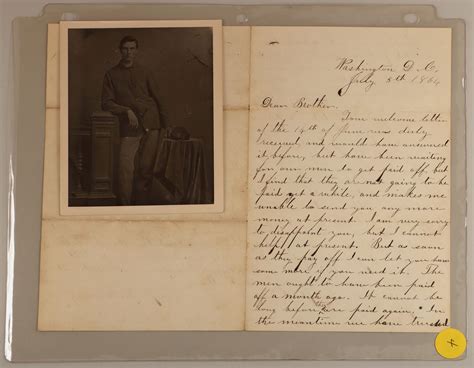 Washington D.C.
July 5th 1864
Dear Brother.
Your welcome letter
of the 14th of June was duly
received, and would have answered
it before, but have been waiting
for our men to get paid off, but
I find that they are not going to be
paid yet a while, and makes me
unable to send you any more
money at present. I am very sorry
to disappoint you, but I cannot
help it at present. But as soon
as they pay off I can let you have
some more if you need it. The
men ought to have been paid
off a month ago. It cannot be
long before they are paid again. In
the meantime we have trusted